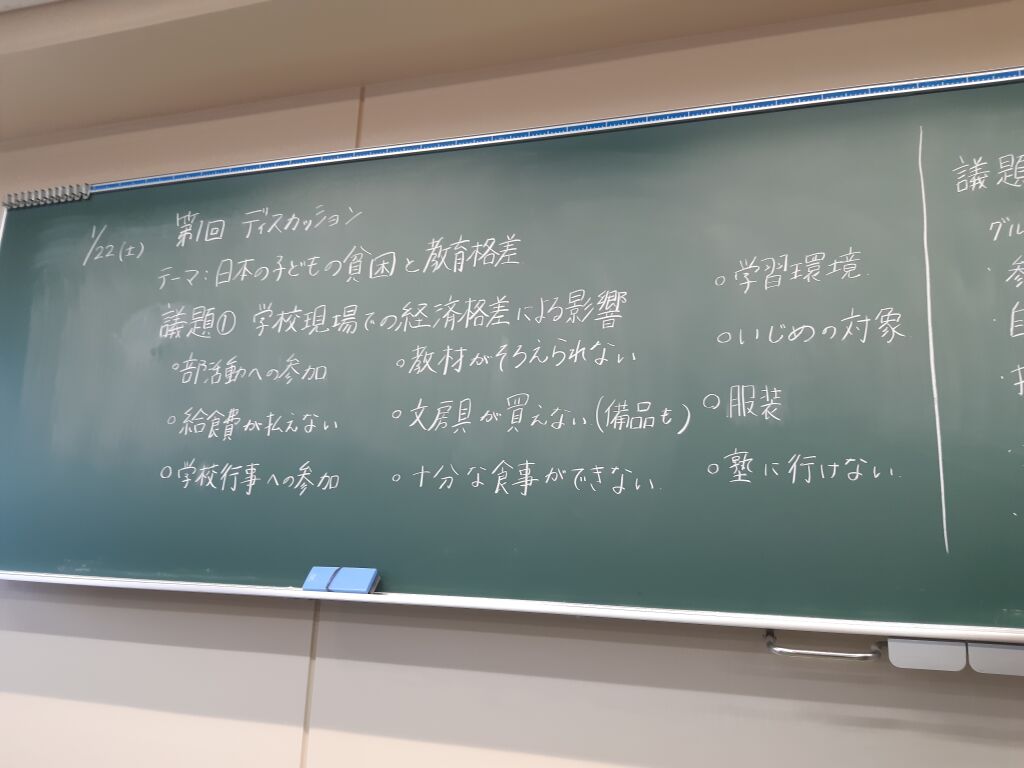 1/22(土) 第1回 ディスカッション
テーマ:日本の子どもの貧困と教育格差
議題① 学校現場での経済格差による影響
○部活動への参加
○給食費が払えない
○学校行事への参加
○教材がそろえられない
○文房具が買えない(備品も)
○十分な食事ができない
○学習環境
○いじめの対象
○服装
○塾に行けない
議題
グル
・参
・自